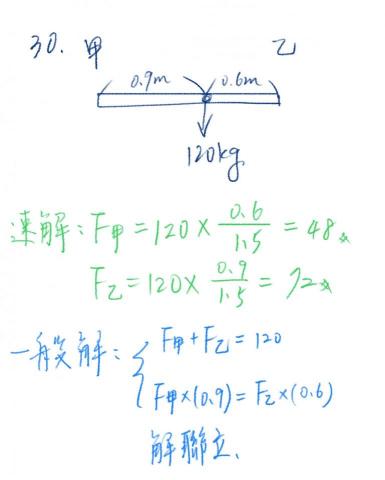 30. 甲 乙
0.9m 0.6m
120kg
速解：F甲 = 120 × 0.6/1.5 = 48
F乙 = 120 × 0.9/1.5 = 72
一般解：{ F甲 + F乙 = 120
F甲 × (0.9) = F乙 × (0.6)
解聯立、